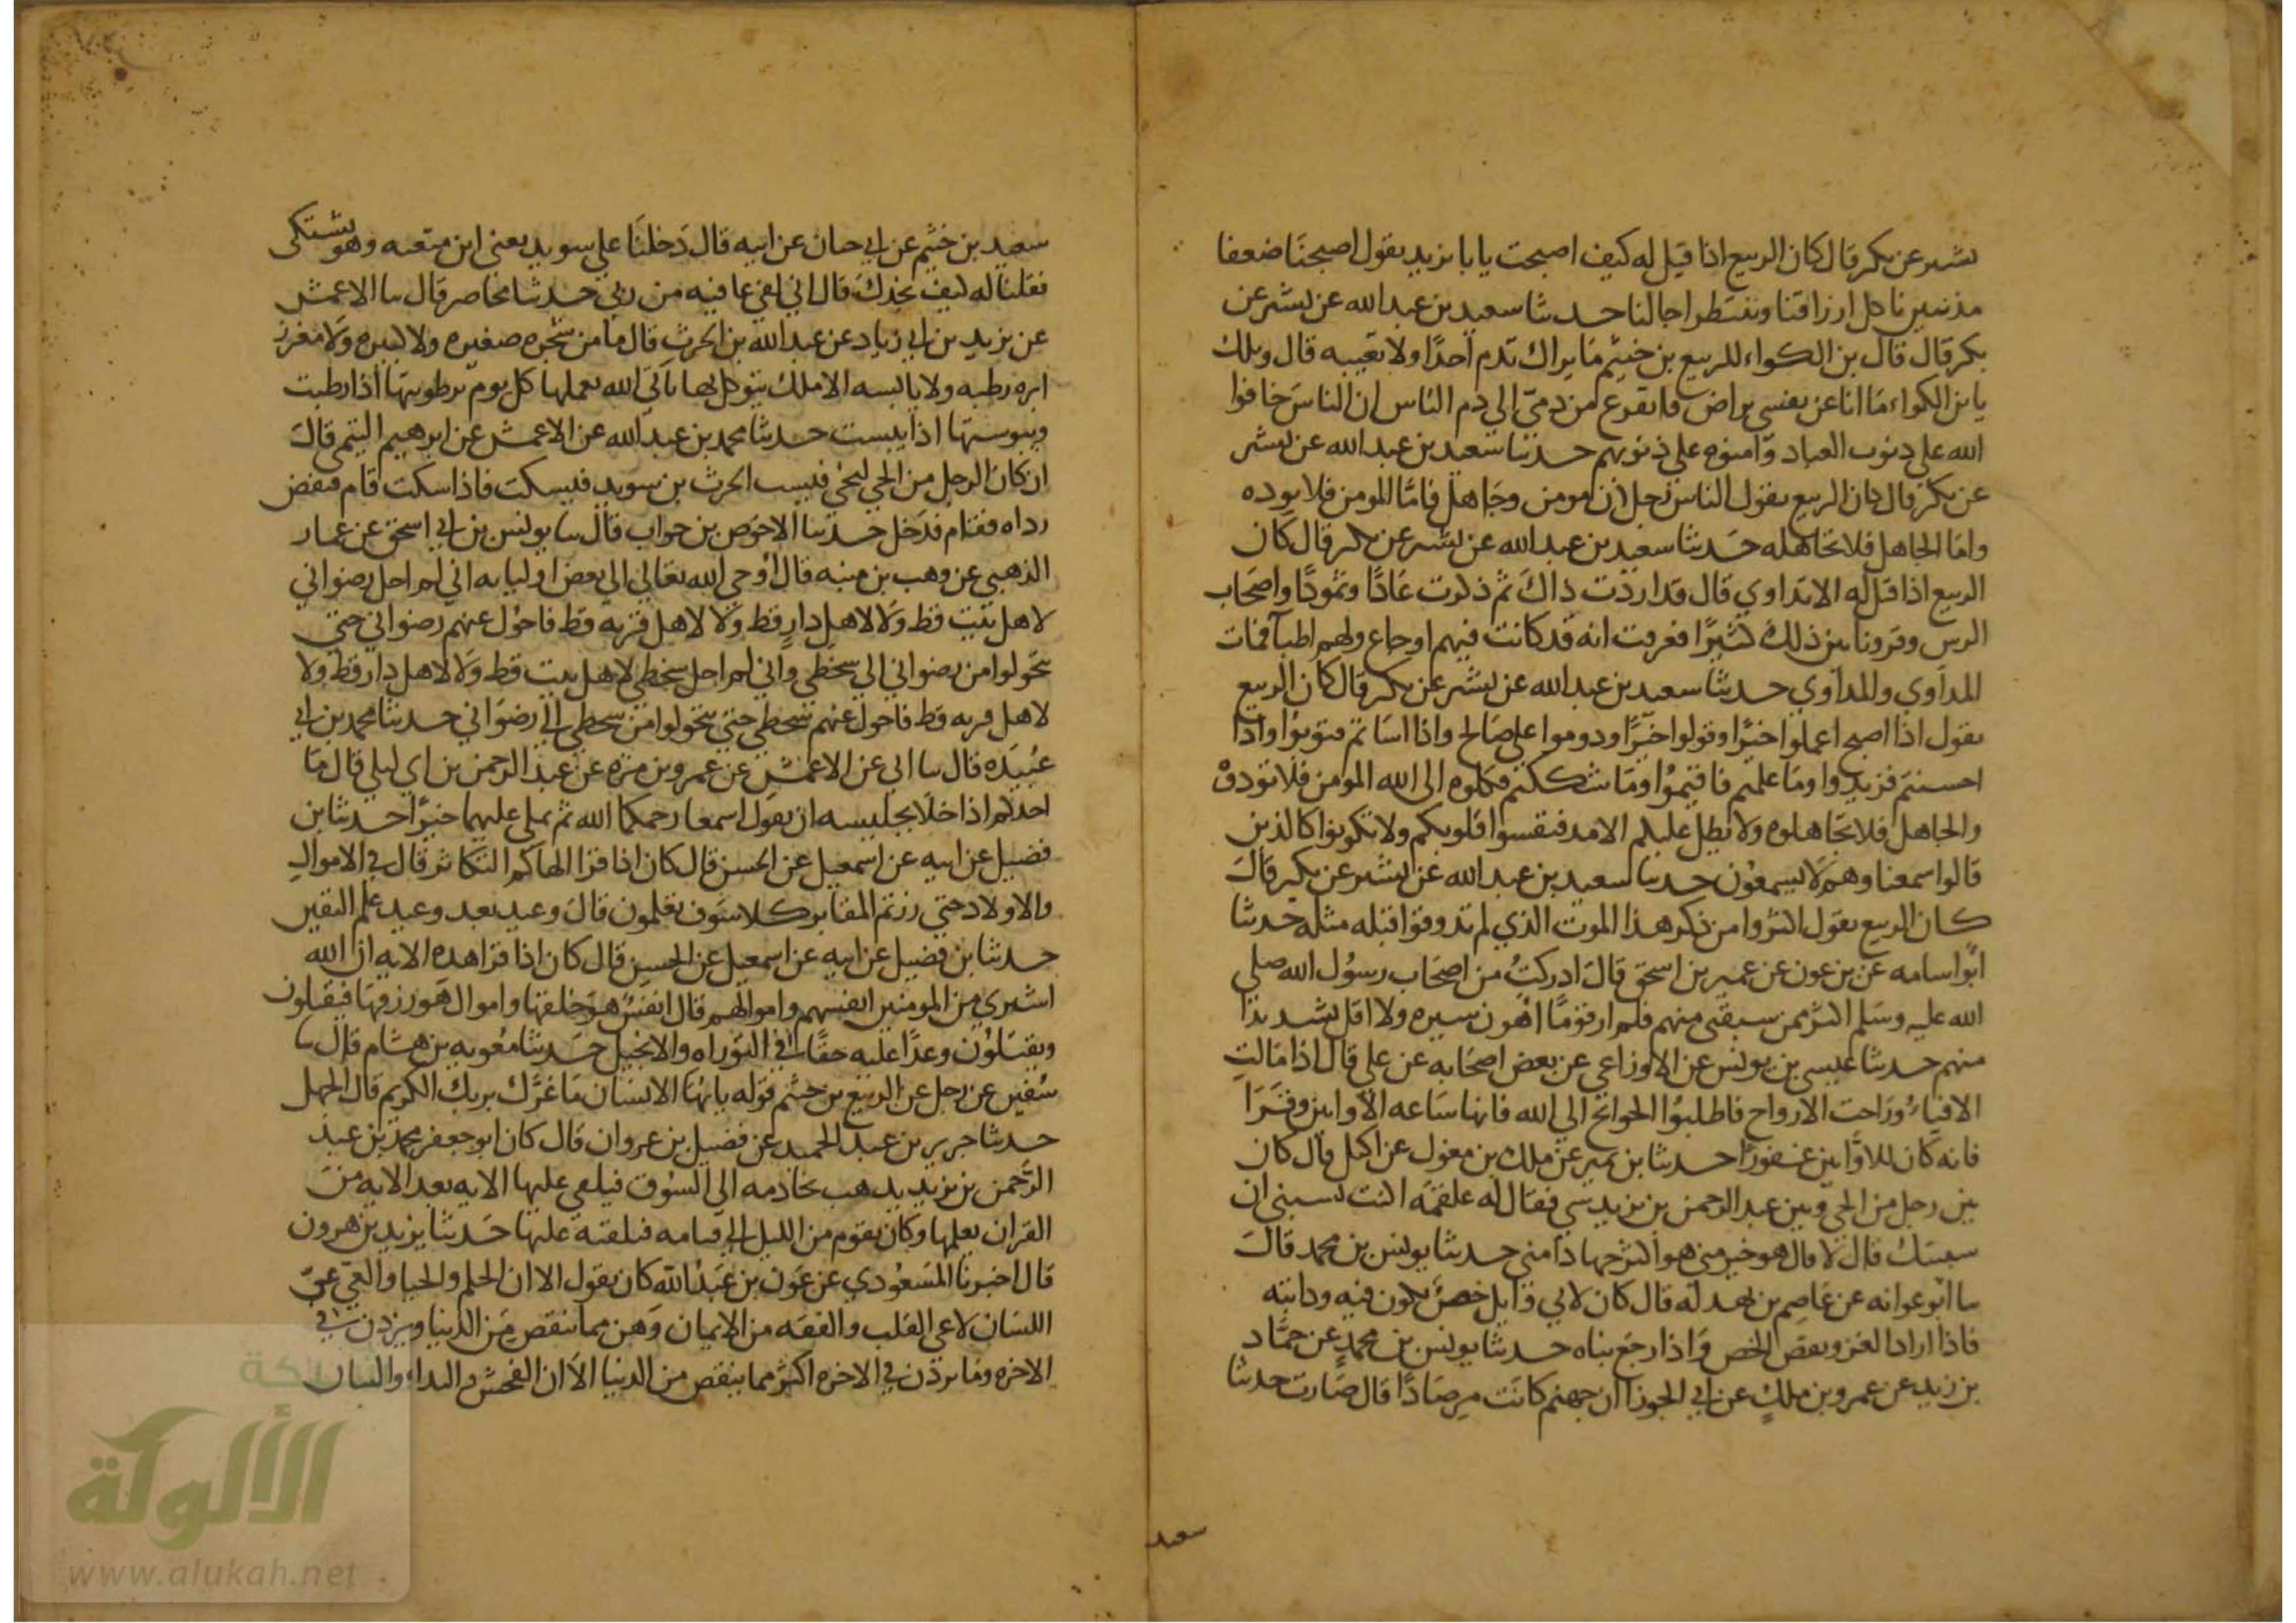 بشير عن بكر قال كان الربيع اذا قيل له كيف اصبحت يا با يزيد يقول اصبحنا ضعفا
مذنبين ناكل ارزاقنا وننتظر اجالنا حدثنا سعيد بن عبد الله عن بشير عن
بكر قال قال بن الكواء للربيع بن خثيم ما يراك تذم احدا ولا تعيبه قال ويلك
يا بن الكواء ما انا عن نفسي براض فاتفرع من ذمي الي ذم الناس ان الناس خافوا
الله علي ذنوب العباد وامنوه علي ذنوبهم حدثنا سعيد بن عبد الله عن بشير
عن بكر قال كان الربيع يقول الناس رجلان مومن وجاهل فاما المومن فلا يوده
واما الجاهل فلا تجاهله حدثنا سعيد بن عبد الله عن بشير عن بكر قال كان
الربيع اذا قيل له الا تداوي قال قد اردت ذاك ثم ذكرت عادا وثمودا واصحاب
الرس وقرونا بين ذلك كثيرا فعرفت انه قد كانت فيهم اوجاع ولهم اطبا فمات
المداوي والمداوي حدثنا سعيد بن عبد الله عن بشير عن بكر قال كان الربيع
يقول اذا اصبح اعملوا خيرا وقولوا خيرا ودوموا علي صالح واذا اساتم فتوبوا واذا
احسنتم فزيدوا وما علمتم فاقيموا وما شككتم فكلوه الي الله المومن فلا توذوه
والجاهل فلا تجاهلوه ولا يطل عليكم الامد فتقسوا قلوبكم ولا تكونوا كالذين
قالوا سمعنا وهم لا يسمعون حدثنا سعيد بن عبد الله عن بشير عن بكير قال
كان الربيع يقول اكثروا من ذكر هذا الموت الذي لم تذوقوا قبله مثله حدثنا
ابو اسامه عن بن عون عن عمير بن اسحق قال ادركت من اصحاب رسول الله صلي
الله عليه وسلم اكثر ممن سبقني منهم فلم ار قوما اهون سيره ولا اقل تشديدا
منهم حدثنا عيسي بن يونس عن الاوزاعي عن بعض اصحابه عن علي قال اذا مالت
الافياء وراحت الارواح فاطلبوا الحوائج الي الله فانها ساعه الاوابين وقرا
فانه كان للاوابين غفورا حدثنا بن نمير عن ملك بن مغول عن اكيل قال كان
بين رجل من الحي وبين عبد الرحمن بن يزيد شي فقال له علقمه اكنت تسبني ان
سببتك قال لا قال هو خير مني هو اكثر جهادا مني حدثنا يونس بن محمد قال
سا ابو عوانه عن عاصم بن بهدله قال كان لابي وايل خص يكون فيه ودابته
فاذا اراد الغزو نقض الخص واذا رجع بناه حدثنا يونس بن محمد عن حماد
بن زيد عن عمرو بن ملك عن ابي الجوزا ان جهنم كانت مرصادا قال صارت حدثنا
سعيد
سعيد بن خثيم عن ابي حيان عن ابيه قال دخلنا علي سويد يعني ابن متعبه وهو يشتكي
فقلنا له كيف تجدك قال اني لفي عافيه من ربي حدثنا محاضر قال سا الاعمش
عن يزيد بن ابي زياد عن عبد الله بن الحرث قال ما من شجره صغيره ولا كبيره ولا مغرز
ابره رطبه ولا يابسه الا ملك يتوكل بها ياتي الله بعملها كل يوم برطوبتها اذا رطبت
ويبوستها اذا يبست حدثنا محمد بن عبد الله عن الاعمش عن ابرهيم التيمي قال
ان كان الرجل من الحي ليجي فيسب الحرث بن سويد فيسكت فاذا سكت قام فنفض
رداه فقام فدخل حدثنا الاحوص بن جواب قال سا يونس بن ابي اسحق عن عمار
الذهبي عن وهب بن منبه قال اوحي الله تعالي الي بعض اوليايه اني لم احل رضواني
لاهل بيت قط ولا لاهل دار قط ولا لاهل قريه قط فاحول عنهم رضواني حتي
يتحولوا من رضواني الي سخطي واني لم احل سخطي لاهل بيت قط ولا لاهل دار قط ولا
لاهل قريه قط فاحول عنهم سخطي حتي يتحولوا من سخطي الي رضواني حدثنا محمد بن ابي
عبيده قال سا ابي عن الاعمش عن عمرو بن مره عن عبد الرحمن بن ابي ليلي قال ما
احدكم اذا خلا بجليسه ان يقول اسمعا رحمكما الله ثم يملي عليهما خيرا حدثنا بن
فضيل عن ابيه عن اسمعيل عن الحسن قال كان اذا قرا الهاكم التكاثر قال في الاموال
والاولاد حتي زرتم المقابر كلا سوف تعلمون قال وعيد بعد وعيد علم اليقين
حدثنا بن فضيل عن ابيه عن اسمعيل عن الحسن قال كان اذا قرا هذه الايه ان الله
اشتري من المومنين انفسهم واموالهم قال انفس هو خلقها واموال هو رزقها فيقتلون
ويقتلون وعدا عليه حقا في التوراه والانجيل حدثنا معويه بن هشام قال سا
سفين عن رجل عن الربيع بن خثيم قوله يا ايها الانسان ما غرك بربك الكريم قال الجهل
حدثنا جرير بن عبد الحميد عن فضيل بن غزوان قال كان ابو جعفر محمد بن عبد
الرحمن بن يزيد يذهب بخادمه الي السوق فيلقي عليها الايه بعد الايه من
القران يعلمها وكان يقوم من الليل الي قيامه فيلقنه عليها حدثنا يزيد بن هرون
قال اخبرنا المسعودي عن عون بن عبد الله كان يقول الا ان الحلم والحيا والعي عي
اللسان لا عي القلب والفقه من الايمان وهن مما ينقص من الدنيا ويزدن في
الاخره وما يزدن في الاخره اكثر مما ينقص من الدنيا الا ان الفحش والبذاء والبيان
الألوكة
www.alukah.net